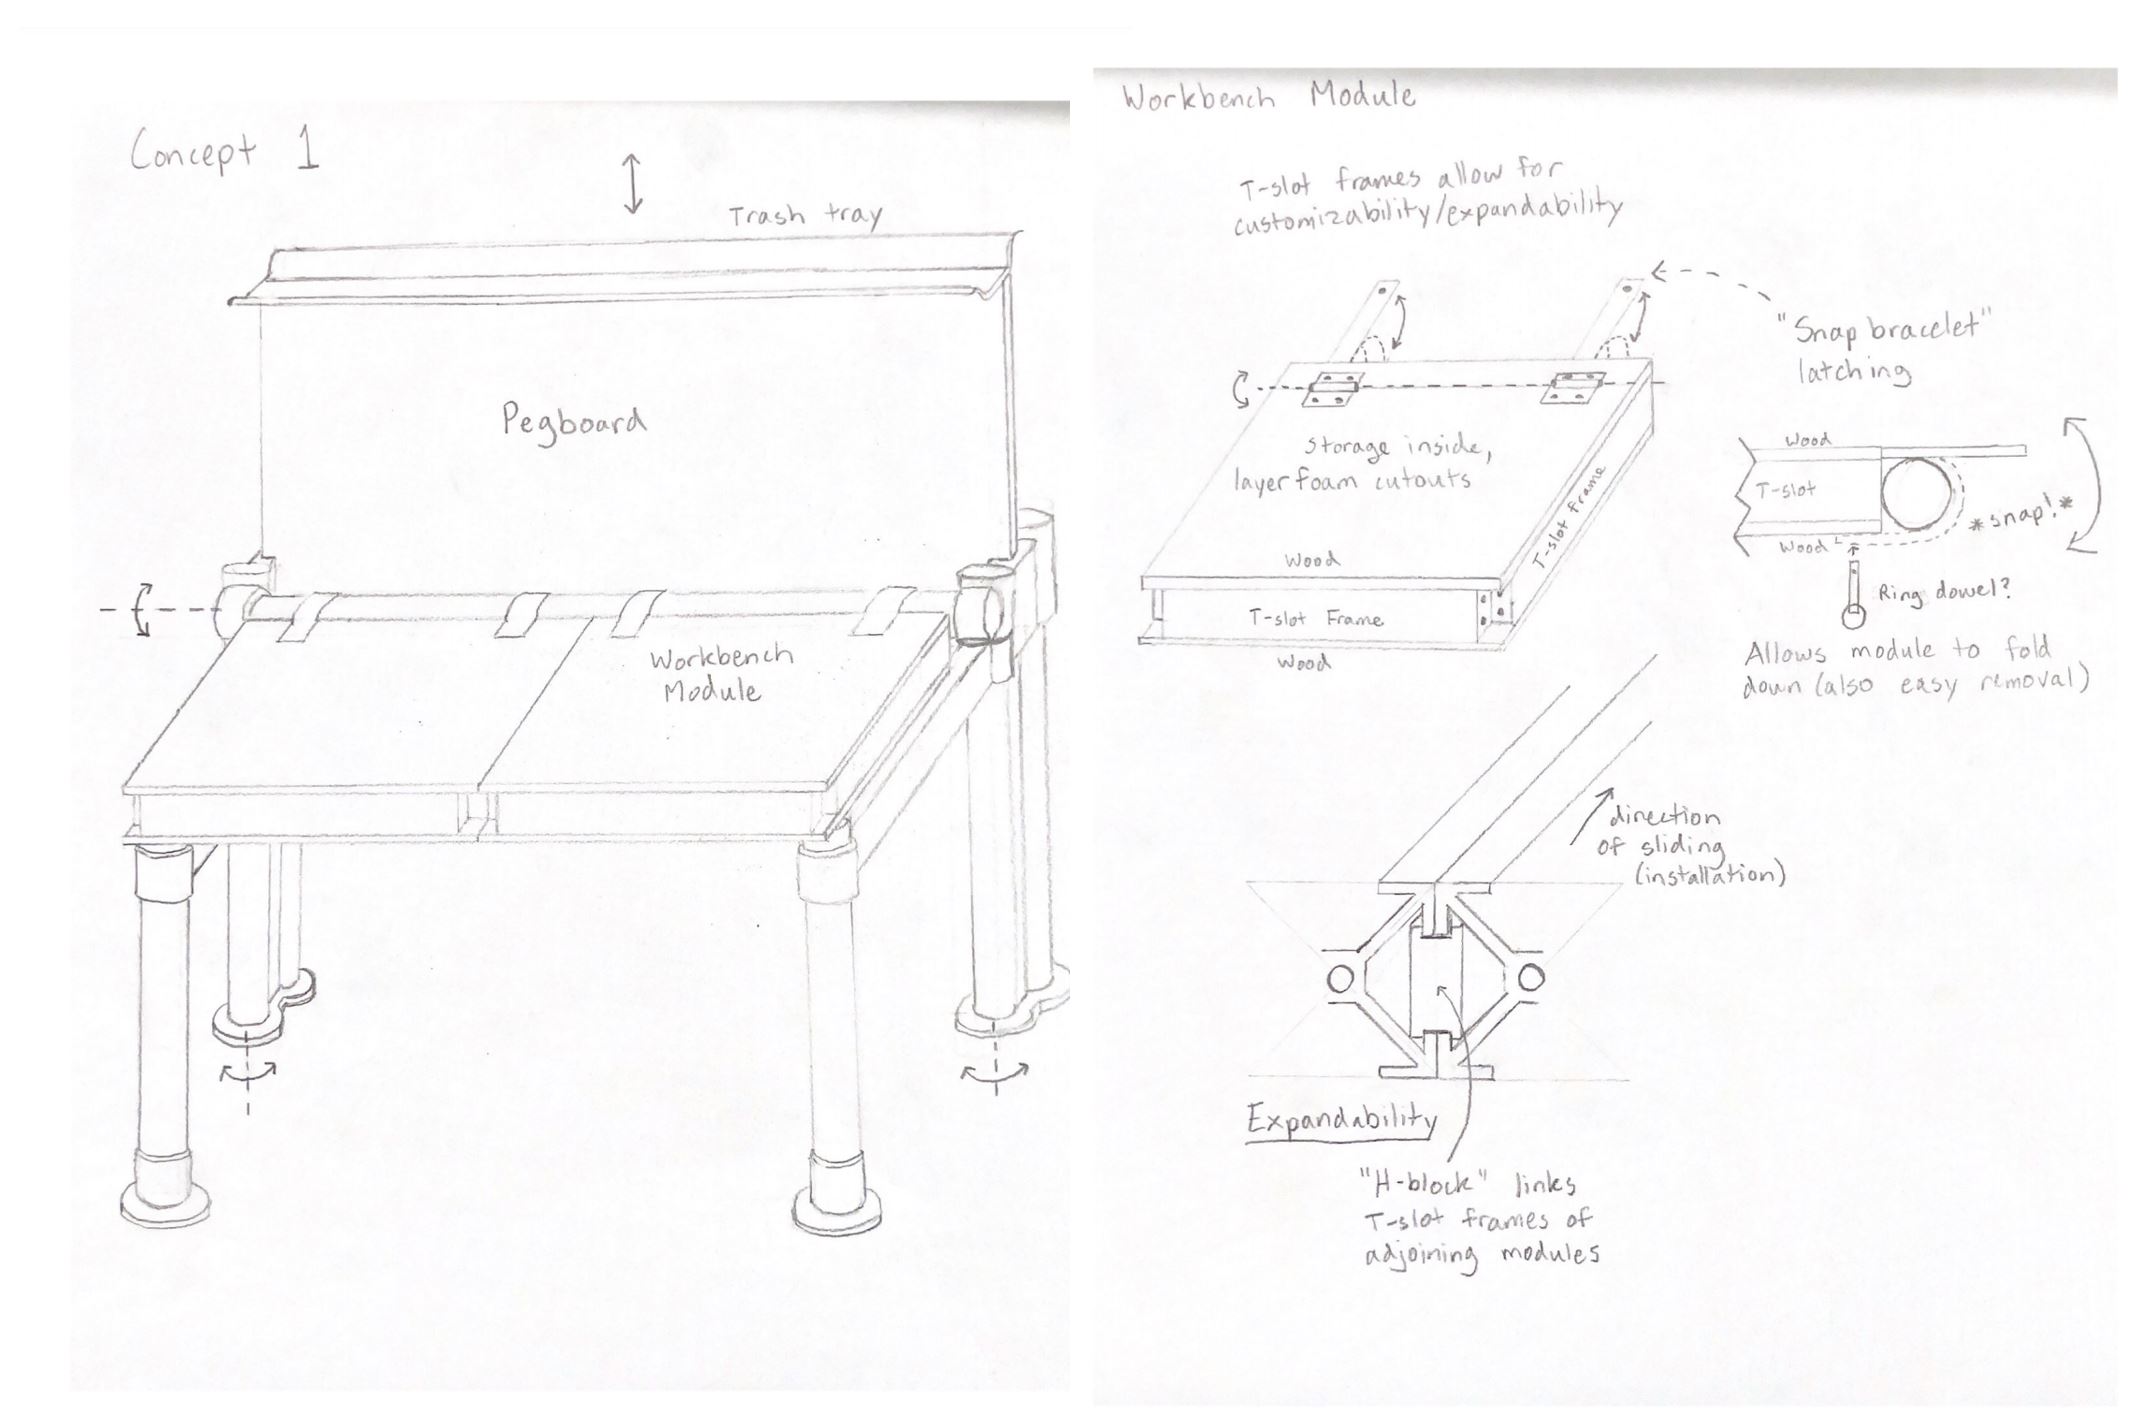 Concept 1
Trash tray
Pegboard
Workbench
Module
Workbench Module
T-slot frames allow for
customizability/expandability
"Snap bracelet"
latching
Storage inside,
layer foam cutouts
T-slot frame
Wood
T-slot Frame
Wood
Wood
T-slot
*snap!*
Wood
Ring dowel?
Allows module to fold
down (also easy removal)
direction
of sliding
(installation)
Expandability
"H-block" links
T-slot frames of
adjoining modules